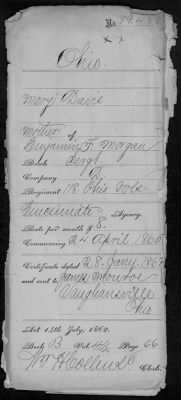 No.
Ohio.
Mary Davis
mother of
Benjamin F. Morgan
Rank Sergt
Company
Regiment 118 Ohio Vols.
Cincinnati Agency.
Rate per month $ 8.
Commencing 24 April 1865
Certificate dated 28. Jany. 1867
and sent to James Monroe
Vaughansville
Ohio
Act 14th July, 1862.
Book B Vol. Page 66
Wm H Collens Clerk.